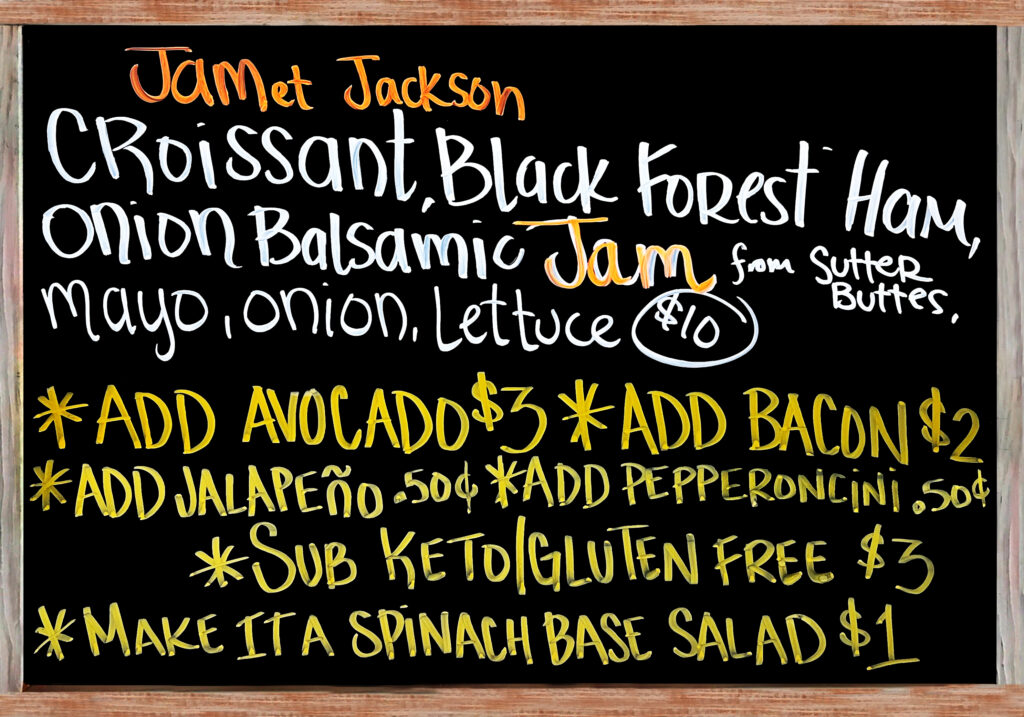 JAMet Jackson
CRoissant, Black FoResT Ham,
Onion Balsamic Jam from SutteR
mayo, onion, Lettuce $10 Buttes,
*ADD AVOCADO $3 *ADD BACON $2
*ADD JALAPEÑO .50¢ *ADD PEPPERONCINI .50¢
*SUB KETO/GLUTEN FREE $3
*MAKE IT A SPINACH BASE SALAD $1